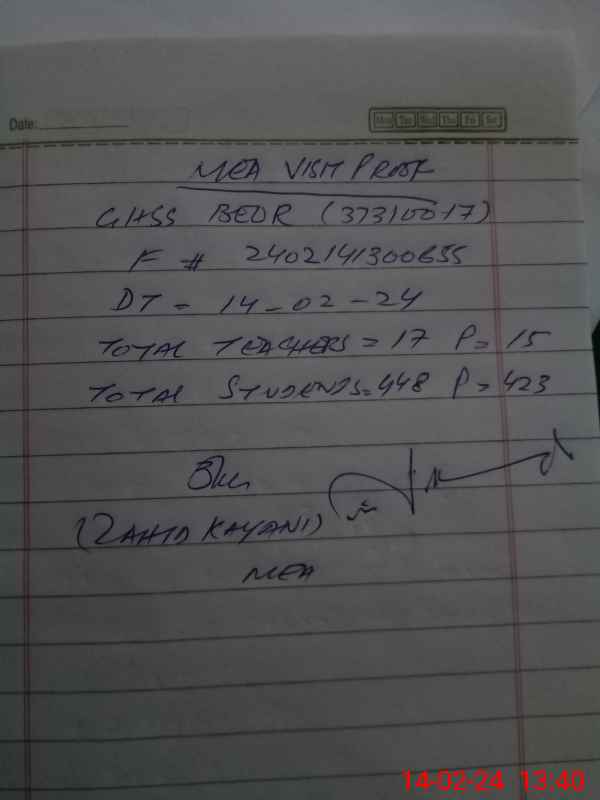 Date:
Mon Tue Wed Thu Fri Sat
MEA VISIT PROOF
GHSS BEOR (37310017)
F # 2402141300655
DT = 14-02-24
TOTAL TEACHERS = 17 P = 15
TOTAL STUDENTS = 448 P = 423
(ZAHID KAYANI)
MEA
14-02-24 13:40